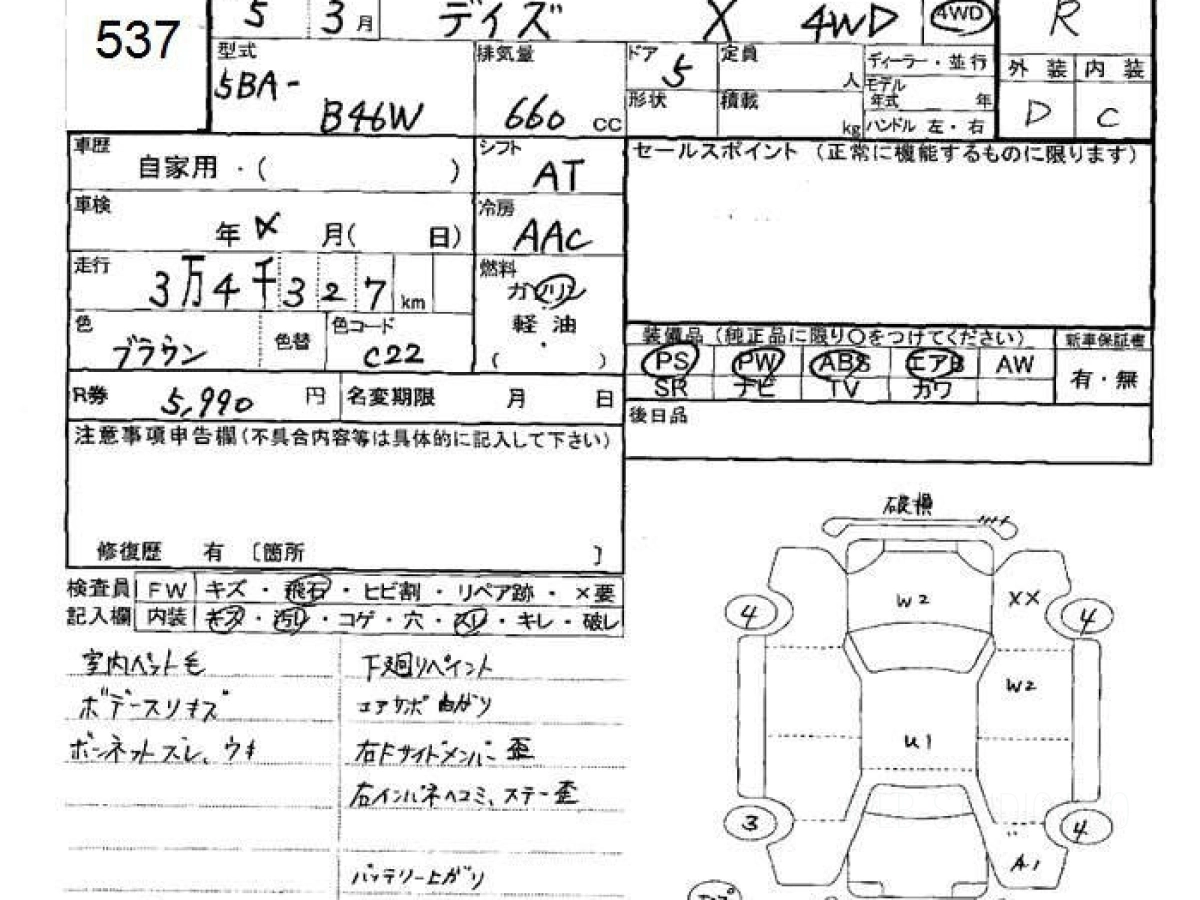 537
5 3月 デイズ X 4WD 4WD R
型式 排気量 ドア 5 定員 人 ディーラー・並行 外装 内装
5BA- B46W 660 cc 形状 積載 kg モデル年式 年 D C
ハンドル 左・右
車歴 自家用・( ) シフト AT セールスポイント (正常に機能するものに限ります)
車検 年 月( 日) 冷房 AAC
走行 3万4千327km 燃料 ガソリン
軽油
( ・ )
色 ブラウン 色替 色コード C22
装備品 (純正品に限り○をつけてください) 新車保証書
PS PW ABS エアB AW 有・無
SR ナビ TV カワ
R券 5,990 円 名変期限 月 日
後日品
注意事項申告欄(不具合内容等は具体的に記入して下さい)
修復歴 有 〔箇所 〕
検査員 FW キズ・飛石・ヒビ割・リペア跡・×要
記入欄 内装 キズ・汚れ・コゲ・穴・スレ・キレ・破し
室内ペット毛 下廻リペイント
ボデースリキズ コアサポ曲がり
ボンネットズレ、ウキ 右Fサイドメンバー歪
右インパネヘコミ、ステー歪
バッテリー上がり
破損
W2 XX
4 4
W2
U1
3 4
A1